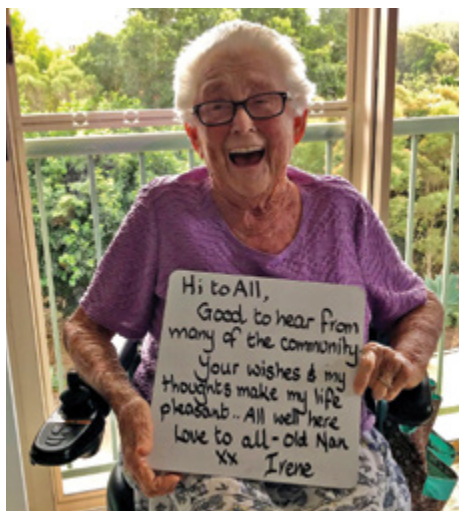 Hi to All,
Good to hear from
many of the community
your wishes & my
thoughts make my life
pleasant.. All well here
Love to all - Old Nan
xx Irene